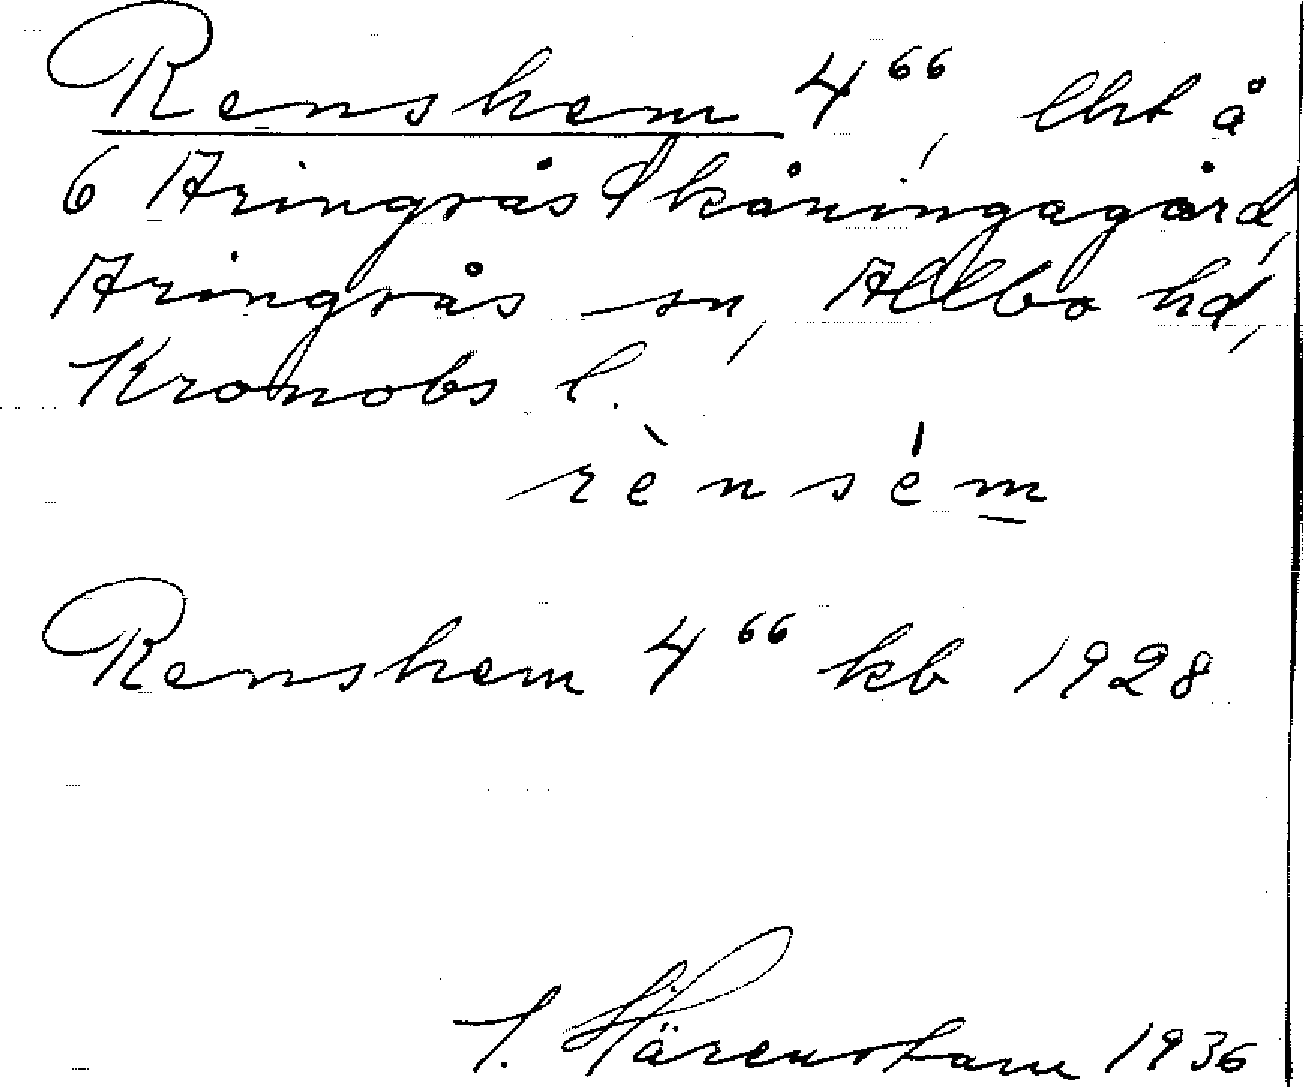 Renshem 4⁶⁶, lht å
6 Aringsås Skåningagård,
Aringsås sn, Allbo hd,
Kronobs l.
rènsém
Renshem 4⁶⁶ kb 1928
Härenstam 1936